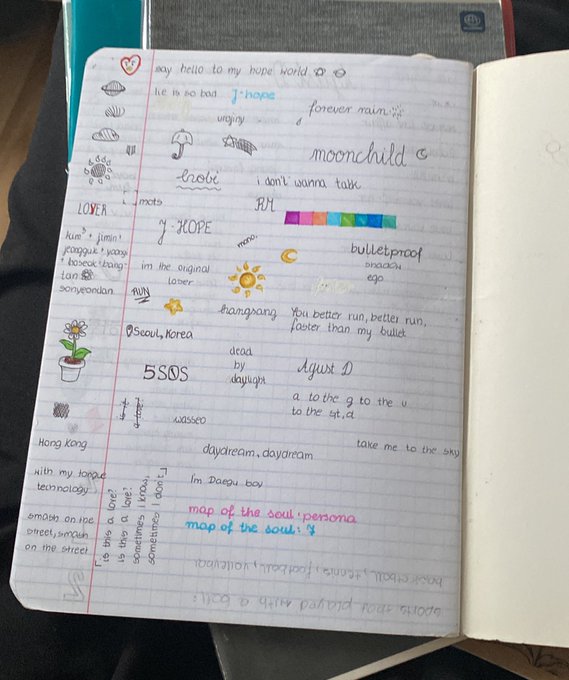 say hello to my hope world
he is so bad J-hope
forever rain
urojiny
moonchild
hobi
i don't wanna talk
[ ] mots
RM
LOVER
J-HOPE
mono.
kim³ + jimin +
jeongguk + yoongi
+ hoseok + bang
tan
sonyeondan
bulletproof
shadow
ego
im the original
lover
RUN
hangsang
You better run, better run,
faster than my bullet
Seoul, Korea
dead
by
daylight
5SOS
Agust D
a to the g to the u
to the st, d
wasseo
Hong Kong
daydream, daydream
take me to the sky
with my tongue
technology
Im Daegu boy
is this a love?
is this a love?
sometimes i know,
sometimes i don't
map of the soul: persona
map of the soul: 7
smash on the
street, smash
on the street
basketball, tennis, football, volleyball
sports that played with a ball: